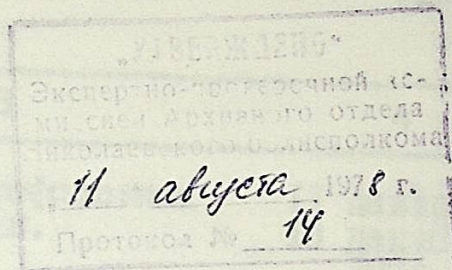 „УТВЕРЖДЕНО“
Экспертно-проверочной ко-
миссией Архивного отдела
Николаевского облисполкома
11 августа 1978 г.
Протокол № 14